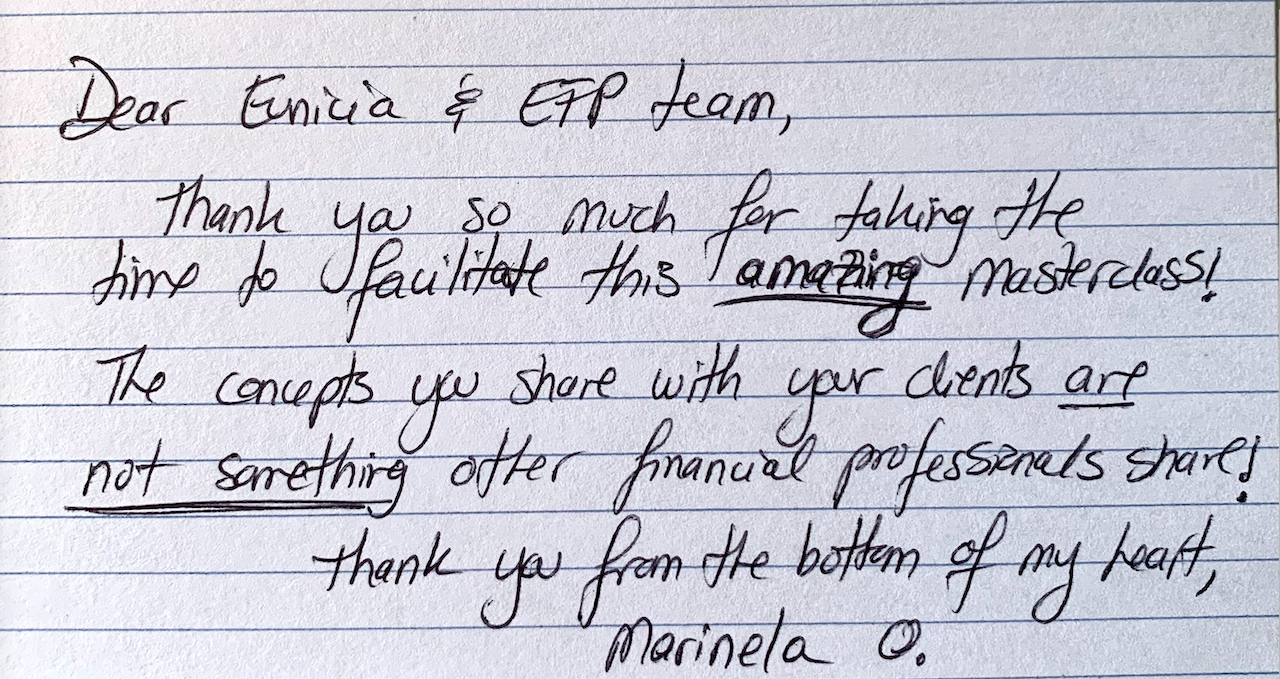 Dear Eunicia & EFP team,
Thank you so much for taking the
time to facilitate this amazing masterclass!
The concepts you share with your clients are
not something other financial professionals share!
Thank you from the bottom of my heart,
Marinela O.